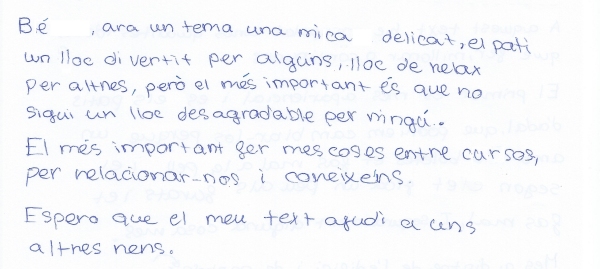 Bé , ara un tema una mica delicat, el pati
un lloc divertit per alguns, lloc de relax
per altres, però el més important és que no
sigui un lloc desagradable per ningú.
El més important fer mes coses entre cursos,
per relacionar-nos i coneixens.
Espero que el meu text ajudi a uns
altres nens.